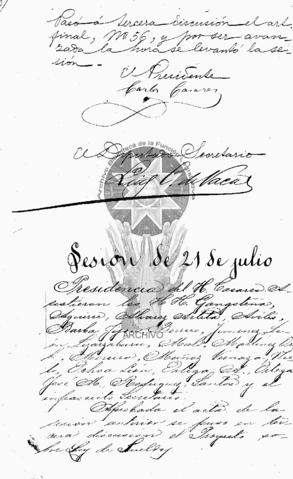 Pasó á tercera discusión el art.
final, Nº 56, y por ser avan-
zada la hora se levantó la se-
sión.
El Presidente
Carlos Casares
El Diputado Secretario
Luis C. de Vaca
Sesion de 21 de julio
Presidencia del H. Casares A-
sistieron los H.H. Gangotena,
Aguirre, Alvarez Arteta, Avilés,
Barba Jijón,
Moreno, Muñoz Vernaza,
Ochoa León, Ortega
José M.
infrascrito Secretario.
Aprobada el acta de la
sesion anterior se puso en ter-
cera discusion el Proyecto so-
bre Ley de Sueldos
ARCHIVO